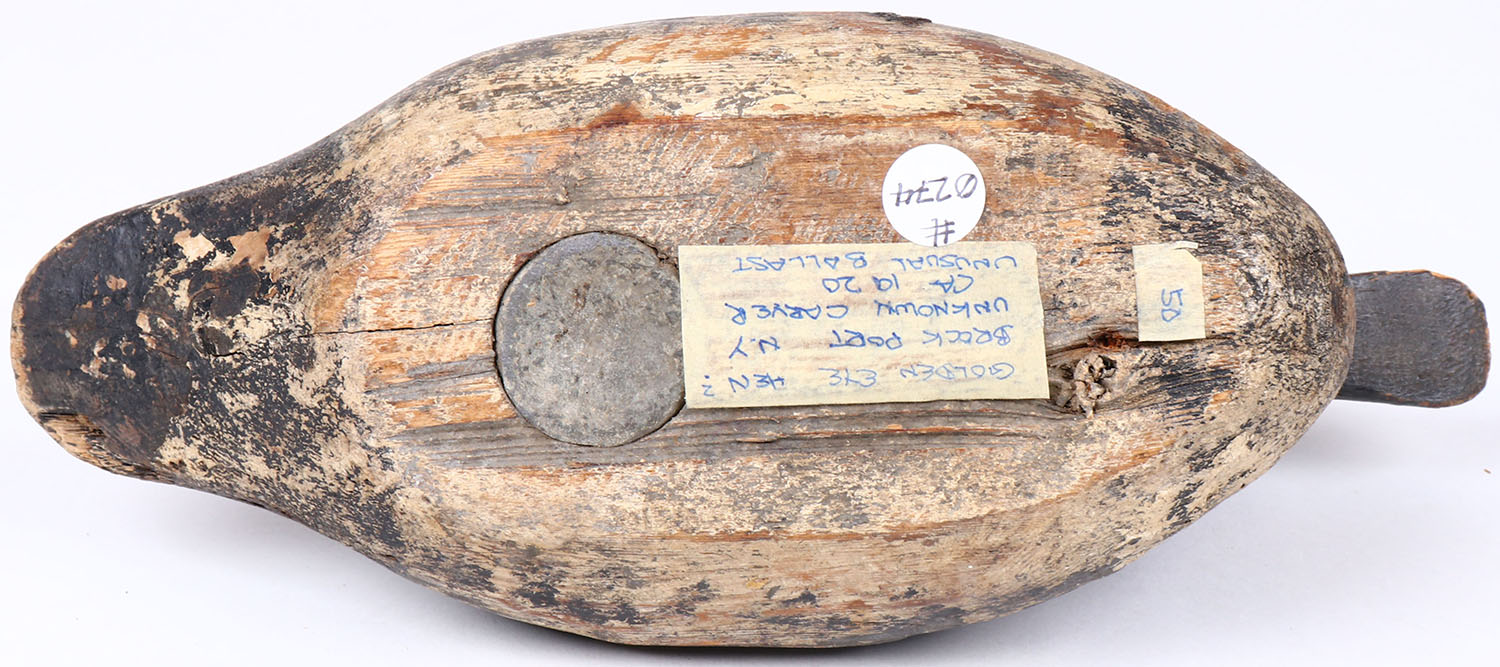 50
GOLDEN EYE HEN?
BROCK PORT N.Y
UNKNOWN CARVER
CA 1920
UNUSUAL BALLAST
#
0274